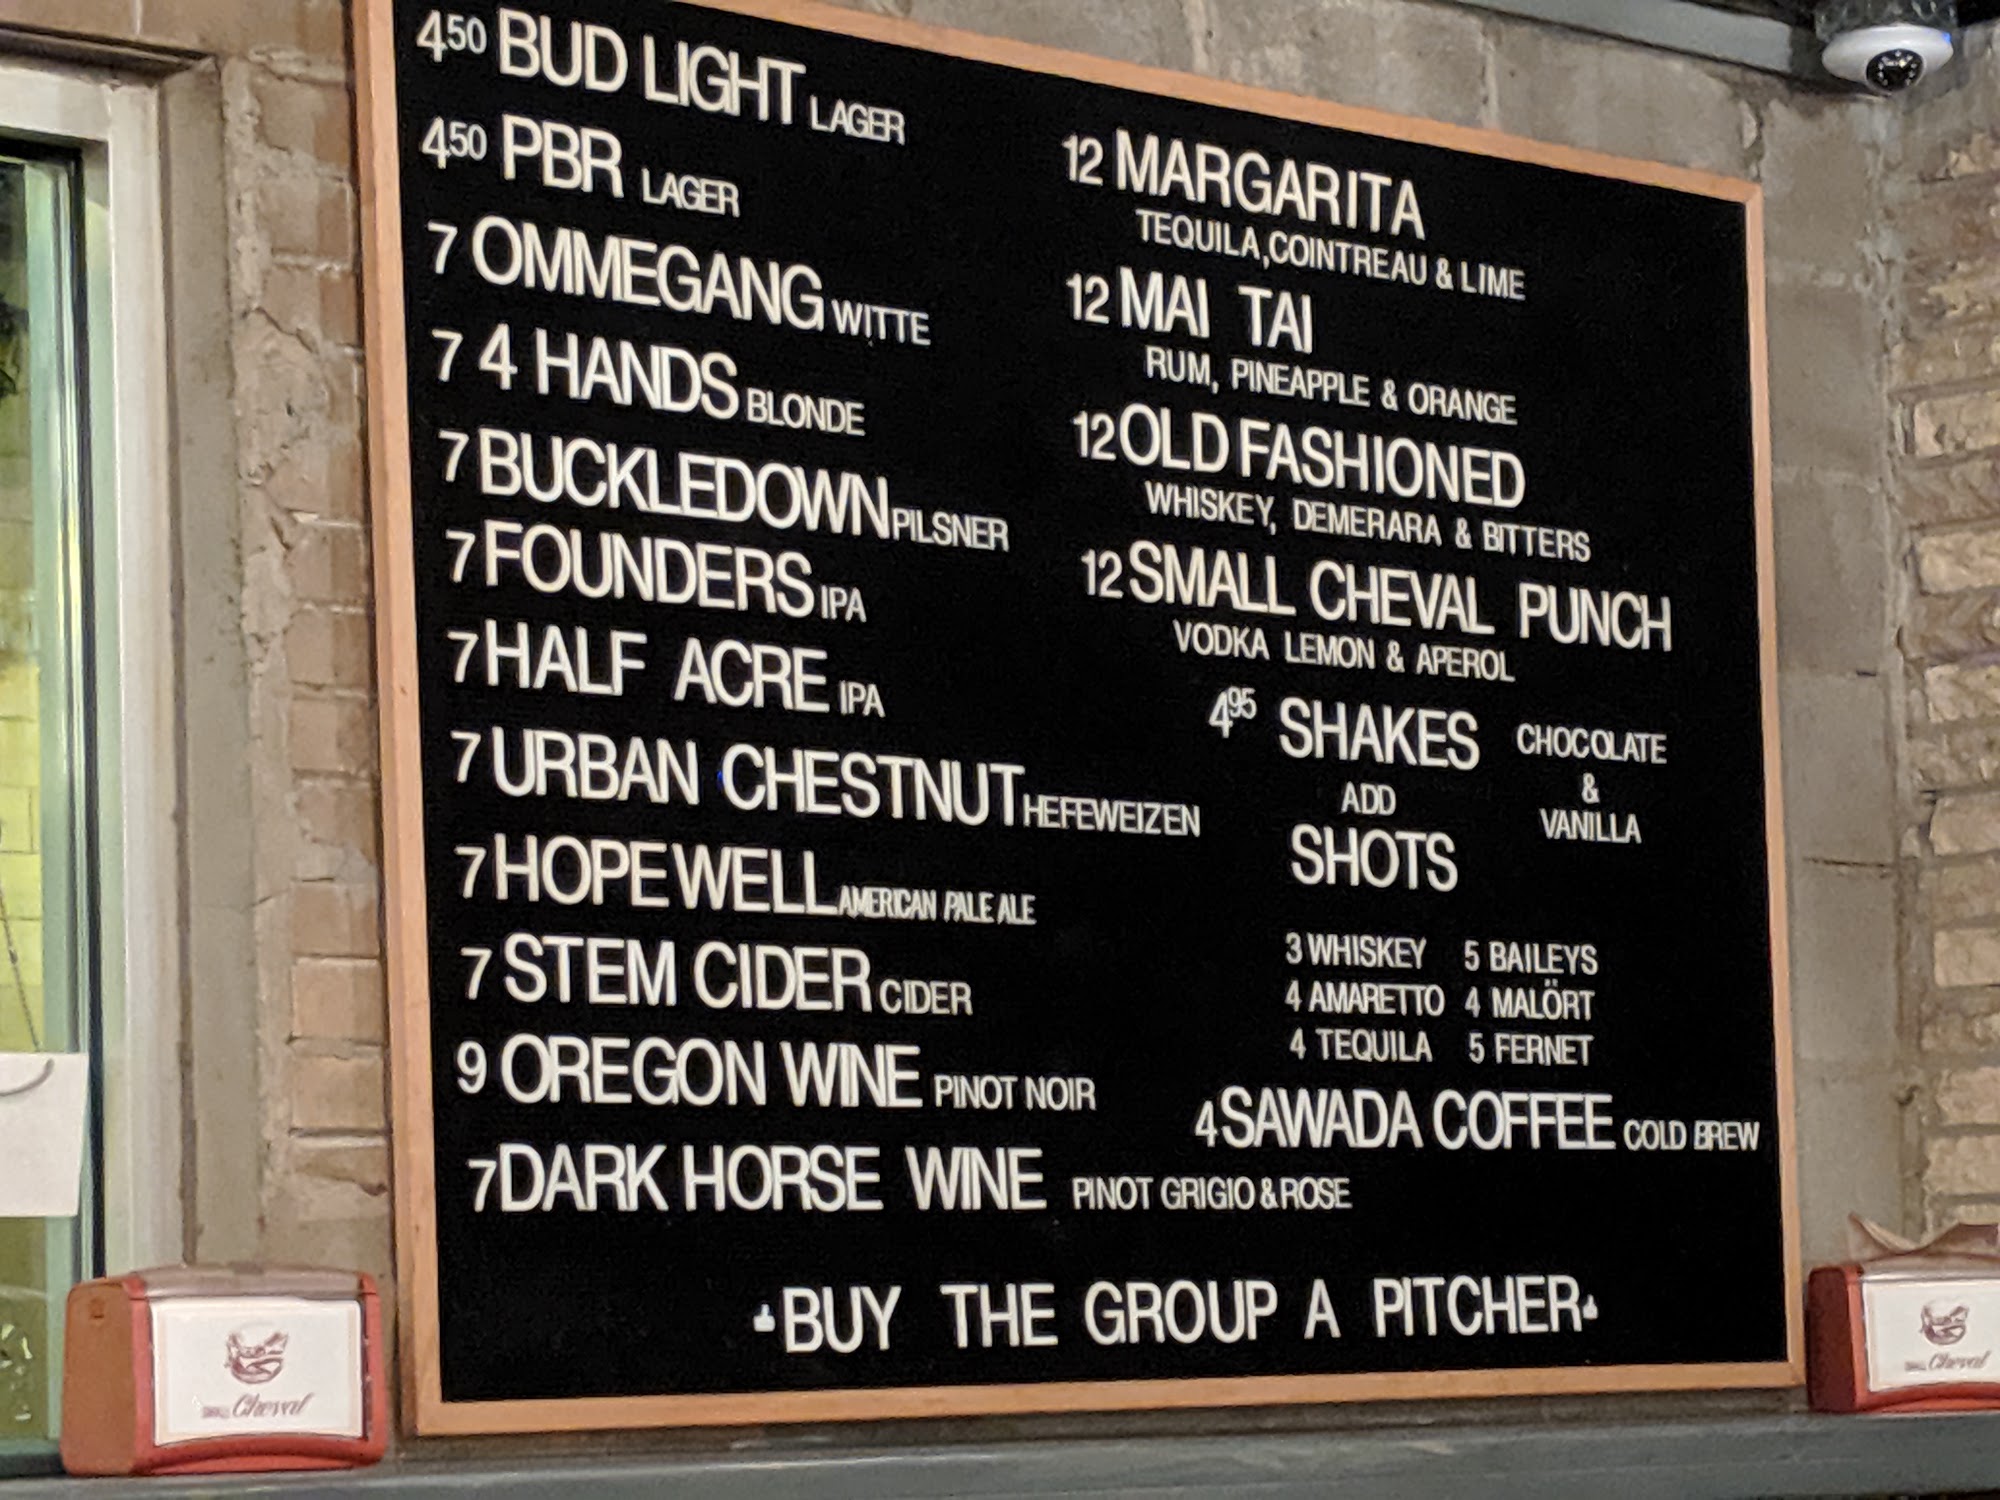 450 BUD LIGHT LAGER
450 PBR LAGER
7 OMMEGANG WITTE
7 4 HANDS BLONDE
7 BUCKLEDOWN PILSNER
7 FOUNDERS IPA
7 HALF ACRE IPA
7 URBAN CHESTNUT HEFEWEIZEN
7 HOPEWELL AMERICAN PALE ALE
7 STEM CIDER CIDER
9 OREGON WINE PINOT NOIR
7 DARK HORSE WINE PINOT GRIGIO & ROSE
12 MARGARITA
TEQUILA, COINTREAU & LIME
12 MAI TAI
RUM, PINEAPPLE & ORANGE
12 OLD FASHIONED
WHISKEY, DEMERARA & BITTERS
12 SMALL CHEVAL PUNCH
VODKA LEMON & APEROL
495 SHAKES
CHOCOLATE
&
VANILLA
ADD
SHOTS
3 WHISKEY 5 BAILEYS
4 AMARETTO 4 MALÖRT
4 TEQUILA 5 FERNET
4 SAWADA COFFEE COLD BREW
BUY THE GROUP A PITCHER
Cheval
Cheval